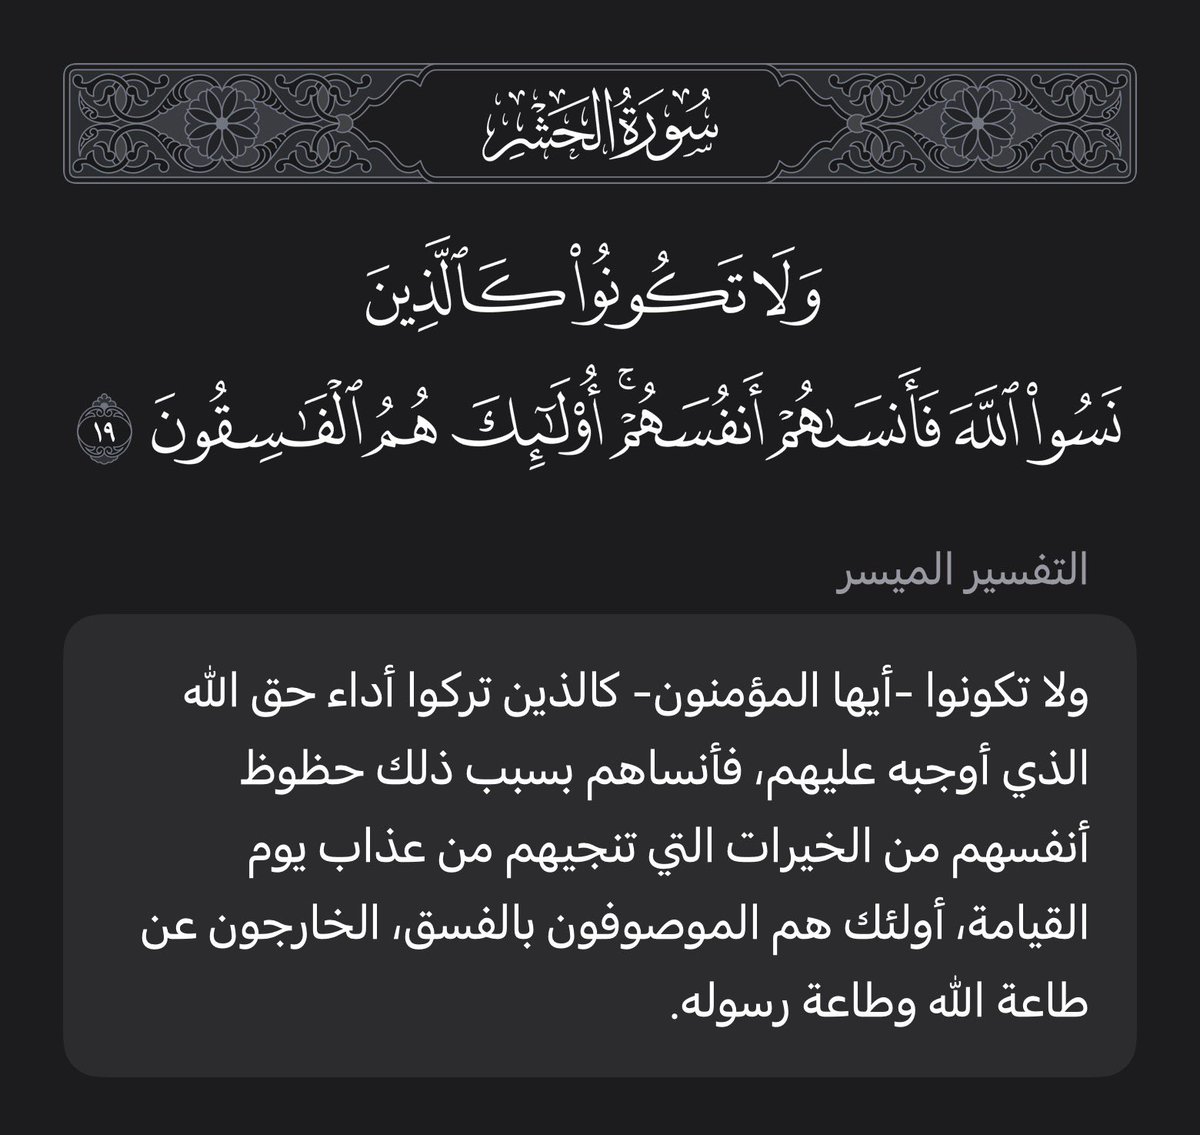 سُورَةُ الحَشْرِ
وَلَا تَكُونُوا۟ كَٱلَّذِينَ
نَسُوا۟ ٱللَّهَ فَأَنسَىٰهُمْ أَنفُسَهُمْ ۚ أُو۟لَـٰٓئِكَ هُمُ ٱلْفَـٰسِقُونَ ١٩
التفسير الميسر
ولا تكونوا -أيها المؤمنون- كالذين تركوا أداء حق الله
الذي أوجبه عليهم، فأنساهم بسبب ذلك حظوظ
أنفسهم من الخيرات التي تنجيهم من عذاب يوم
القيامة، أولئك هم الموصوفون بالفسق، الخارجون عن
طاعة الله وطاعة رسوله.